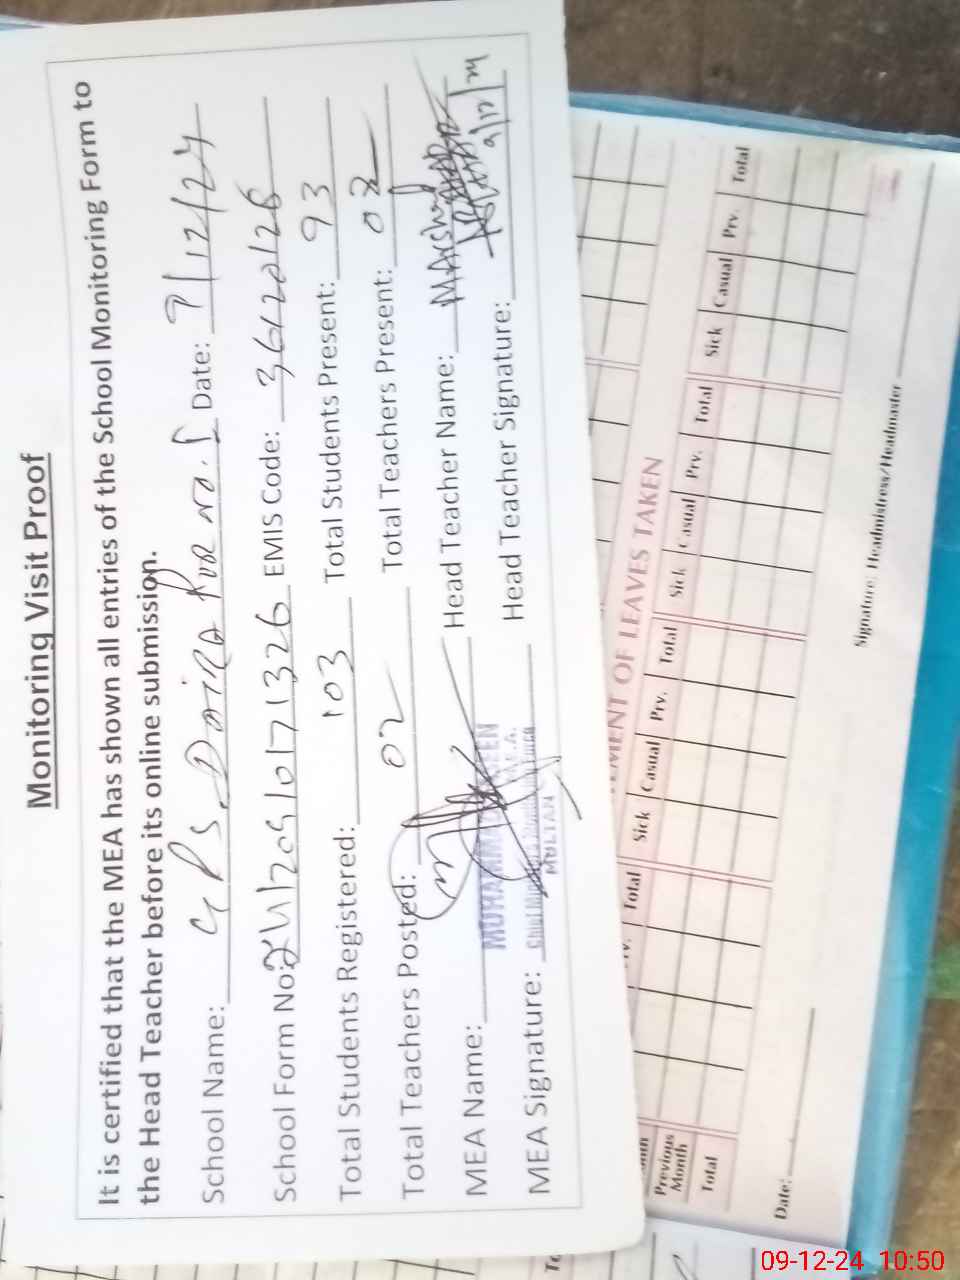 Monitoring Visit Proof
It is certified that the MEA has shown all entries of the School Monitoring Form to
the Head Teacher before its online submission.
School Name: GPS Date: 9/12/24
School Form No: EMIS Code: 36120126
Total Students Registered: 103 Total Students Present: 93
Total Teachers Posted: 02 Total Teachers Present: 02
MEA Name: Head Teacher Name:
MUHAMMAD
MEA Signature: Head Teacher Signature: 9/12/24
MULTAN
MENT OF LEAVES TAKEN
Total Sick Casual Prv. Total Sick Casual Prv. Total Sick Casual Prv. Total
Previous
Month
Total
Date: Signature: Headmistress/Headmaster
09-12-24 10:50